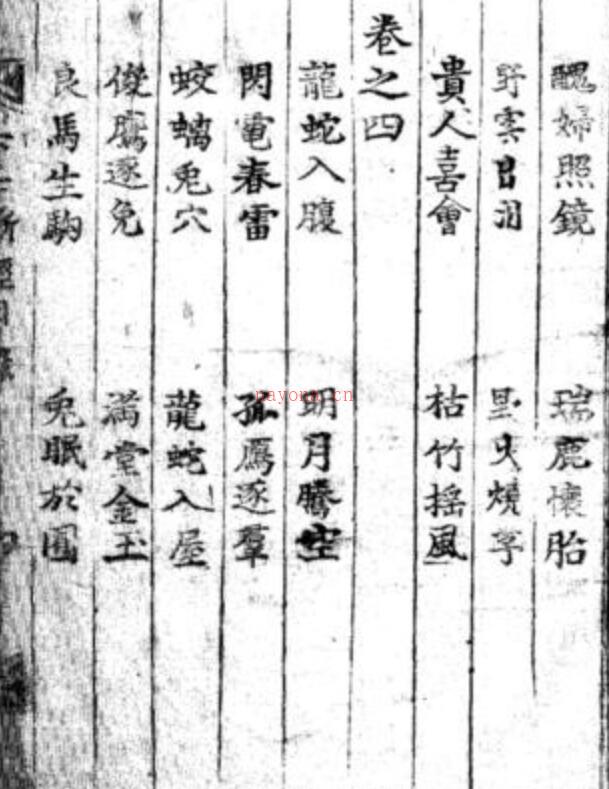 醜婦照鏡 瑞鹿懷胎
野雲 火燒
貴人喜會 枯竹搖風
卷之四
龍蛇入腹 明月騰空
閃電春雷 孤鷹逐羣
蛟螭兎穴 龍蛇入屋
俊鷹逐兎 滿堂金玉
良馬生駒 兎眠於園
nayona.cn